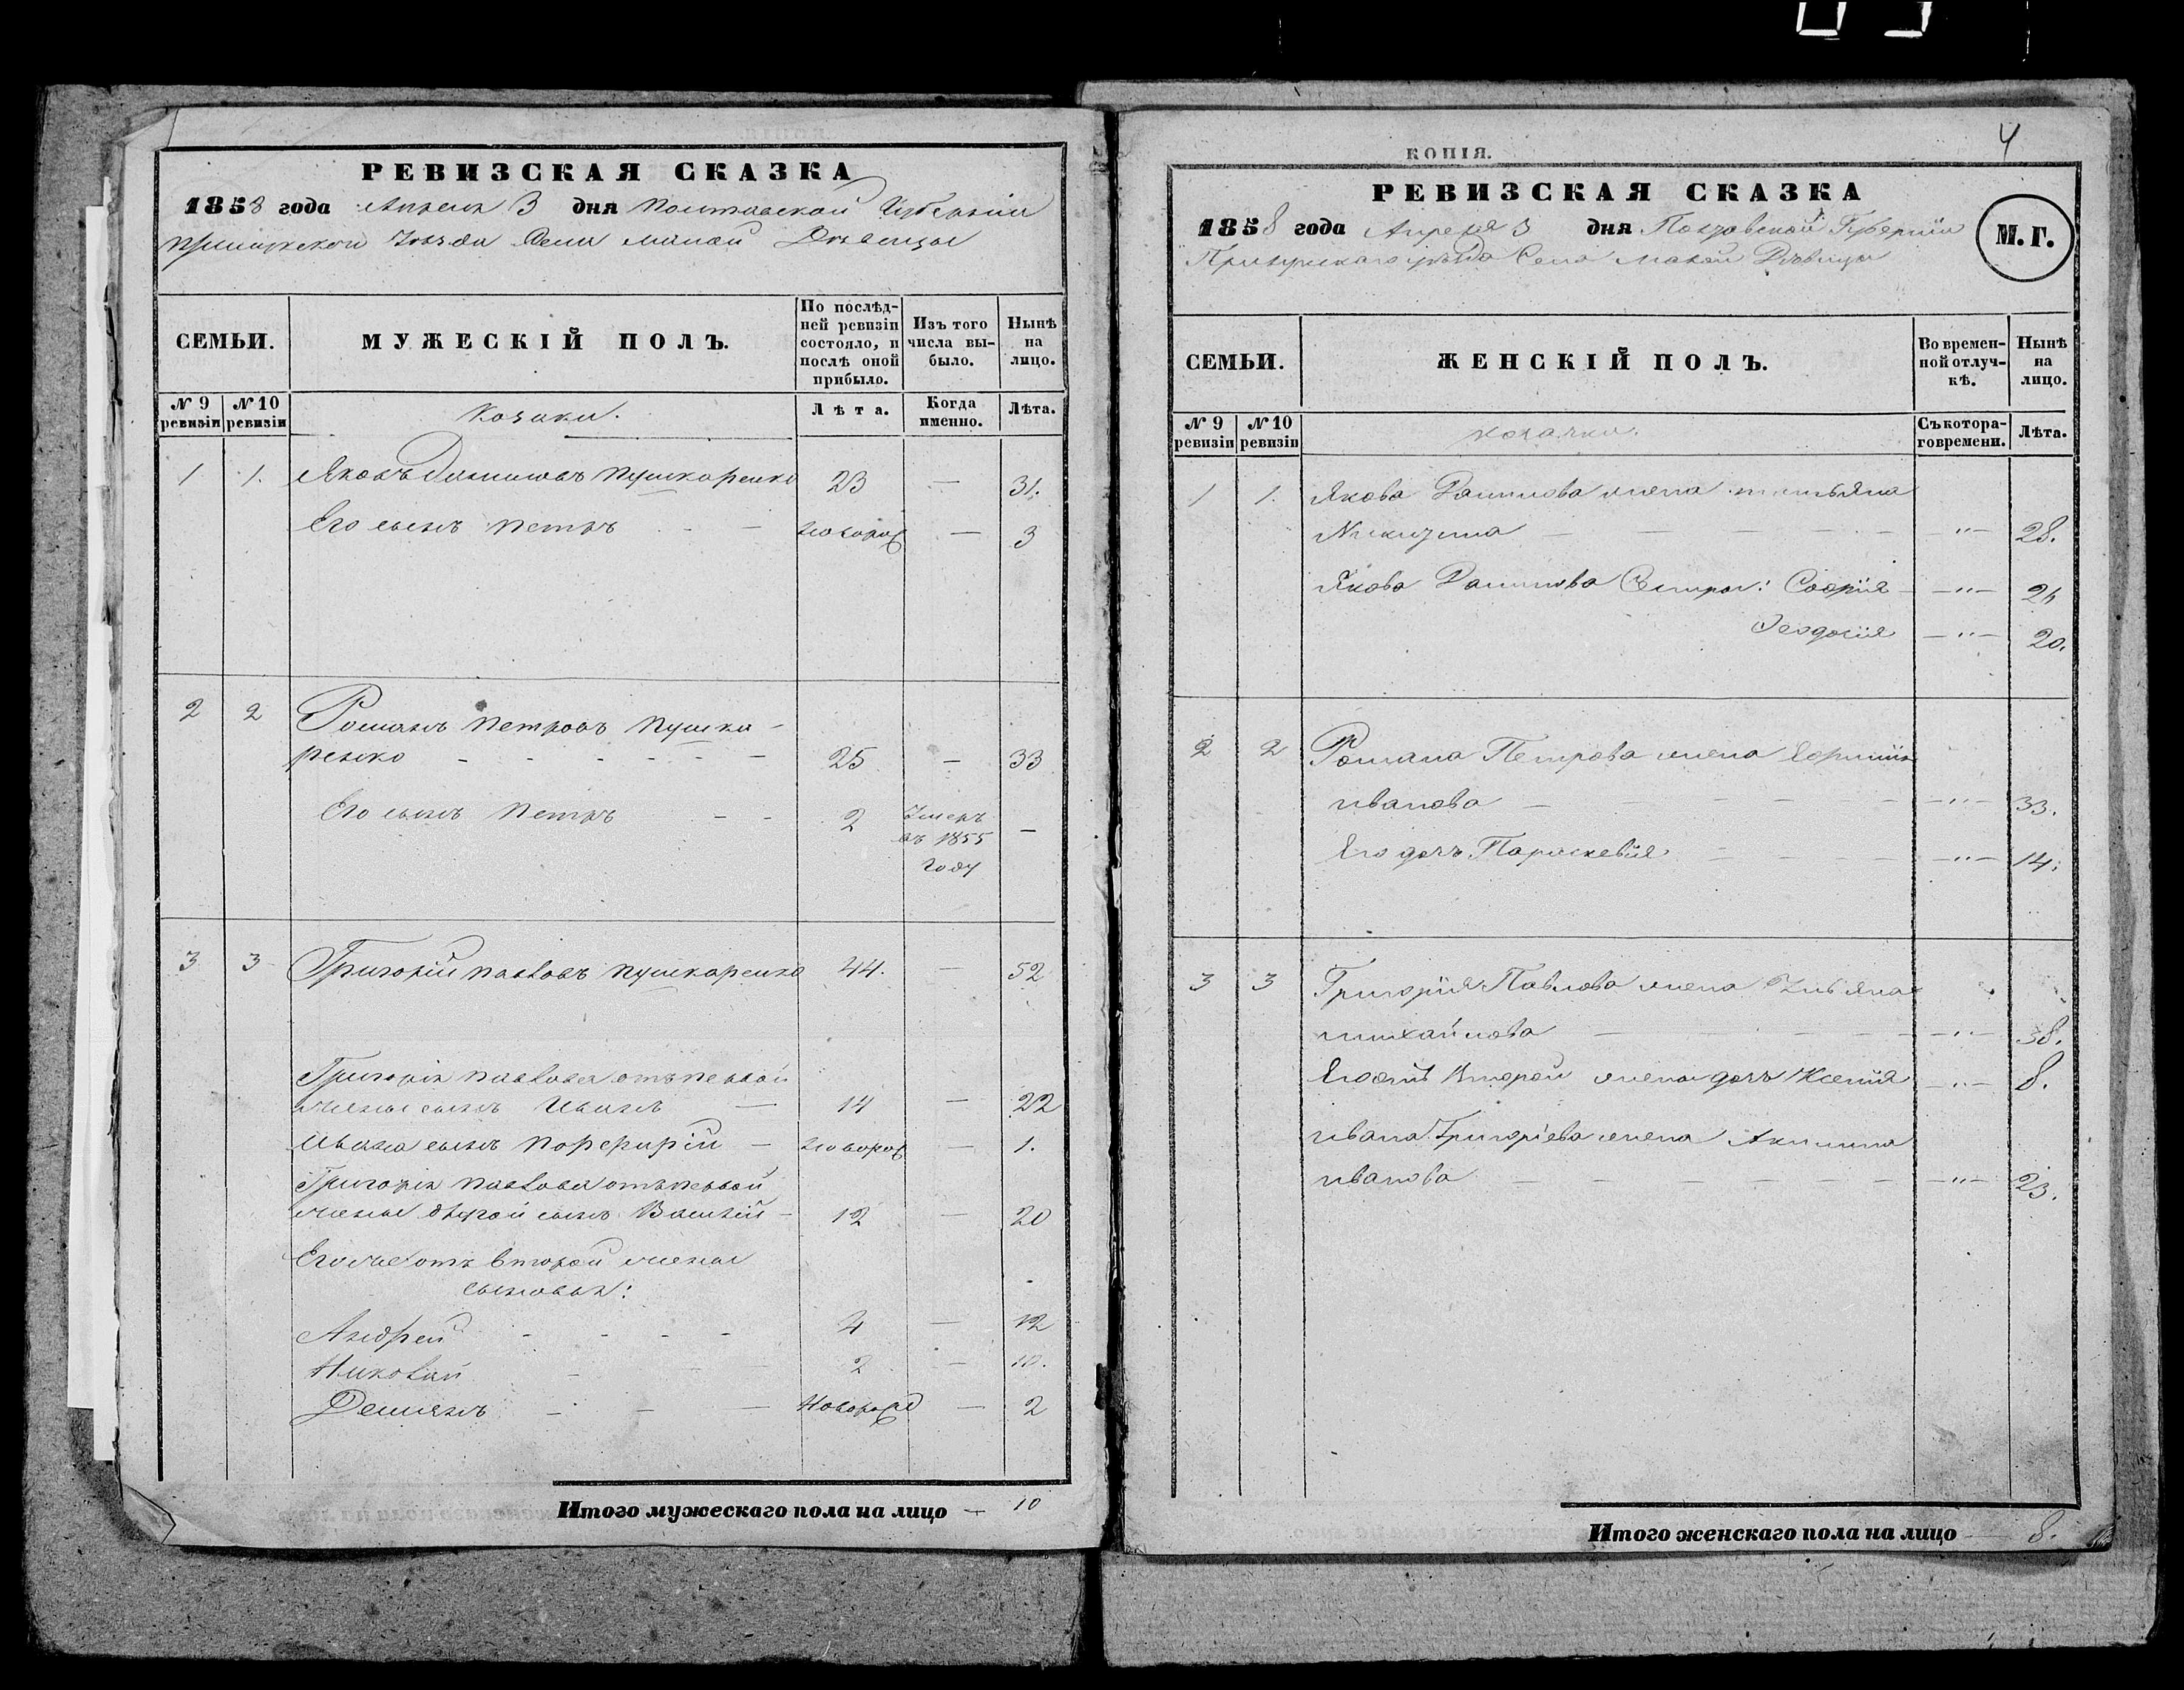 РЕВИЗСКАЯ СКАЗКА
1858 года Апреля 3 дня Полтавской Губернии
Прилукского Уезда Села Малой Девицы
СЕМЬИ.
МУЖЕСКІЙ ПОЛЪ.
По послѣд-
ней ревизіи
состояло, и
послѣ оной
прибыло.
Изъ того
числа вы-
было.
Нынѣ
на
лицо.
№ 9 ревизіи
№ 10 ревизіи
Козаки.
Лѣта.
Когда именно.
Лѣта.
1 1. Яковъ Даниловъ Пушкаренко 23 — 31.
Его сынъ Петръ — новорож — 3
2 2 Романъ Петровъ Пушка-
ренко — 25 — 33
Его сынъ Петръ - - 2 Умеръ —
въ 1855
году
3 3 Григорій Павловъ Пушкаренко 44. — 52
Григорія Павлова отъ первой
жены сынъ Иванъ — 14 — 22
Ивана сынъ Порфирій — новорож — 1.
Григорія Павлова отъ первой
жены второй сынъ Василій - 12 — 20
Его же отъ второй жены
сыновья:
Андрей - - - - 4 — 12
Николай - - 2 — 10.
Демянъ — — — Новорожд — 2
Итого мужескаго пола на лицо — 10
4
КОПІЯ.
РЕВИЗСКАЯ СКАЗКА
1858 года Апреля 3 дня Полтавской Губерніи
Прилукскаго уѣзда Села Малой Дѣвицы
М. Г.
СЕМЬИ.
ЖЕНСКІЙ ПОЛЪ.
Во времен-
ной отлуч-
кѣ.
Нынѣ
на
лицо.
№ 9 ревизіи
№ 10 ревизіи
козачки.
Съ котора-
го времени.
Лѣта.
1 1. Якова Данилова жена Татьяна
Никитина — — — — — " — 28.
Якова Данилова Сестры: Софія — " — 24
Феодосія — " — 20.
2 2 Романа Петрова жена Ефимія
Иванова — — — — — " — 33.
Его дочь Параскевія — — — — " — 14.
3 3 Григорія Павлова жена Ульяна
Михайлова — — — — " — 38.
Его отъ второй жены дочь Ксенія — " — 8.
Ивана Григоріева жена Акилина
Иванова — — — — — — " — 23.
Итого женскаго пола на лицо — 8.